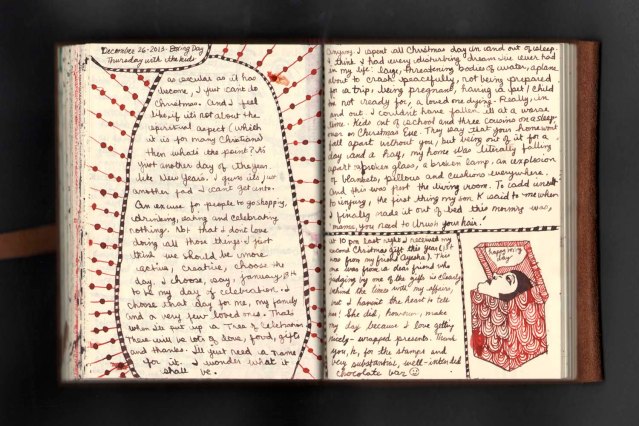 December 26 · 2013 · Boxing Day
Thursday with the kids
as secular as it has
become, I just can't do
Christmas. And I feel
like, if it's not about the
spiritual aspect (which
it is for many Christians)
then what's the point? It's
just another day of the year.
Like New Years, I guess it's just
another fad I can't get into.
An excuse for people to go shopping,
drinking, eating and celebrating
nothing. Not that I don't love
doing all those things. I just
think we should be more
active, creative, choose the
day. I choose, say, January 8th
to be my day of celebration. I
choose that day for me, my family
and a very few loved ones. That's
when I'll put up a Tree of Celebration.
There will be lots of love, food, gifts
and thanks. I'll just need a name
for it. I wonder what it
shall be.
anyway. I spent all Christmas day in and out of sleep.
I think I had every disturbing dream I've ever had
in my life: large, threatening bodies of water, a plane
about to crash peacefully, not being prepared
for a trip, being pregnant, having a pet / child
I'm not ready for, a loved one dying. Really, in
and out. I couldn't have fallen ill at a worse
time. Kids out of school and three cousins on a sleep-
over on Christmas Eve. They say that your home won't
fall apart without you, but being out of it for a
day and a half, my home was literally falling
apart w/ broken glass, a broken lamp, an explosion
of blankets, pillows and cushions everywhere.
And this was just the living room. To add insult
to injury, the first thing my son K said to me when
I finally made it out of bed this morning was,
"mama, you need to brush your hair."
At 10 pm last night I received my
second Christmas gift this year (1st
was from my friend Ayesha). This
one was from a dear friend who
judging by one of the gifts is clearly
behind the times with my affairs,
but I haven't the heart to tell
her! She did, however, make
my day because I love getting
nicely-wrapped presents. Thank
you, K, for the stamps and
very substantial, well-intended
chocolate bar ☺
happy boxing
day